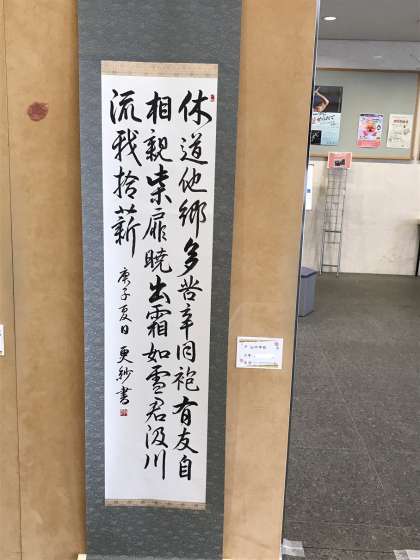 休道他郷多苦辛同袍有友自
相親柴扉暁出霜如雪君汲川
流我拾薪
庚子夏日 更紗書